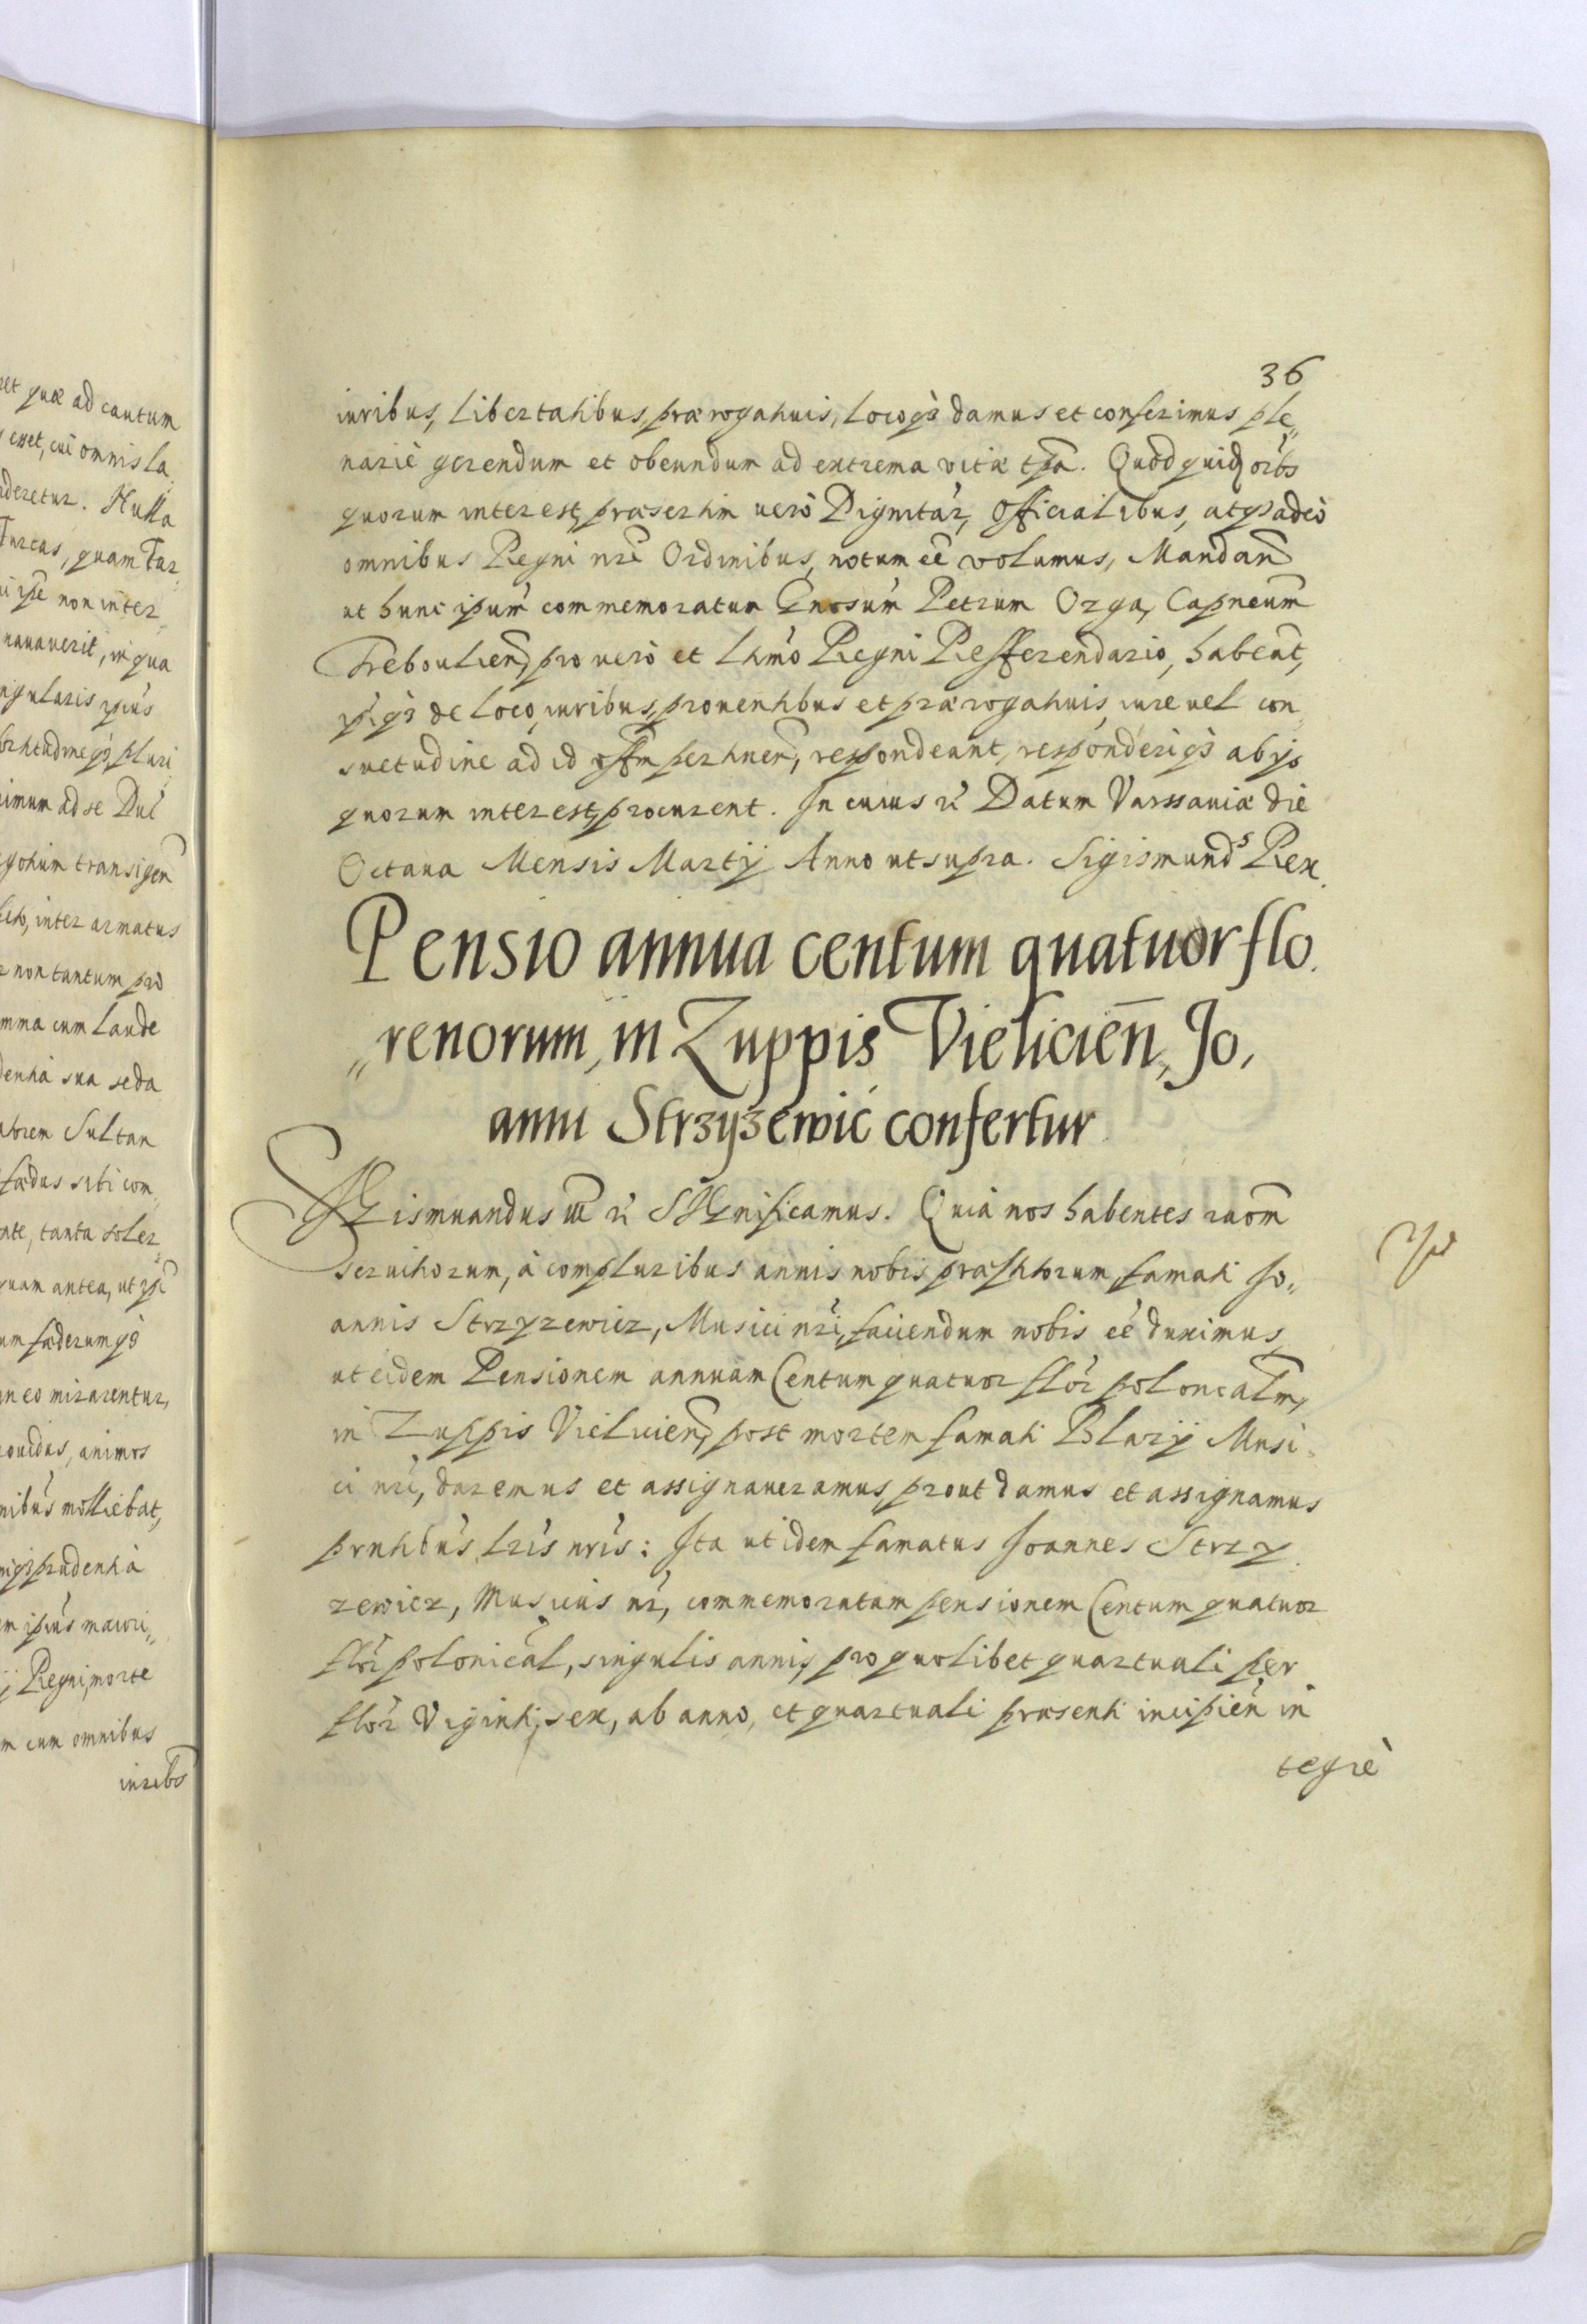 et quæ ad cautum
esset, cui omnis la
deretur. Nulla
Turcas, quam Tar
ipse non inter
navaverit, in qua
ngularis ipius
pluri
imum ad se Dul
gotium transigen
inter armatus
non tantum pro
mma cum laude
dentia sua seda
Sultan
fædus sibi com
ate, tanta soler
quam antea, ut ipi
um fæderumq3
in eo mirarentur,
animos
nibus molliebat,
prudentia
em ipius maiori„
ij Regni, morte
m cum omnibus
iuribs
36
iuribus, libertatibus, prærogativis, locoq3 damus et conferimus ple„
nariè gerendum et obeundum ad extrema vitæ tpa. Quod quidq oibs
quorum interest, præsertim verò Dignitar, Officialibus, atq3 adeò
omnibus Regni nri Ordinibus, notum eē volumus, Mandan
ut hunc ipum commemoratum Gnosum Petrum Ozga, Capneum
Trebowlien, pro vero et lttmo Regni Refferendario, habeant,
ipiq3 de loco, iuribus, proventibus et prærogativis, iure vel con„
suetudine ad id offm pertinen, respondeant, responderiq3 ab ijs
quorum interest, procurent. In cuius ri Datum Varssaviæ die
Octava Mensis Martij Anno ut supra. Sigismunds Rex.
Pensio annua centum quatuor flo.
„renorum, in Zuppis Vielicien̄, Jo,
anni Strzyzewic confertur
Sigismundus III ri Significamus. Quia nos habentes raom
servitiorum, à compluribus annis nobis præstitorum, famati Jo„
annis Strzyzewicz, Musici nri, faciendum nobis eé duximus,
ut eidem Pensionem annuam Centum quatuor flor polonicalm,
in Zuppis Vielicien, post mortem famati Blazij Musi„
ci nri, daremus et assignaveramus, prout damus et assignamus
prntibus lris nris: Ita ut idem famatus Joannes Strzy
zewicz, Musicus nr, commemoratam pensionem Centum quatuor
flor polonical, singulis annis, pro quolibet quartuali per
flor Viginti, sex, ab anno, et quartuali præsenti incipien in
tegrè